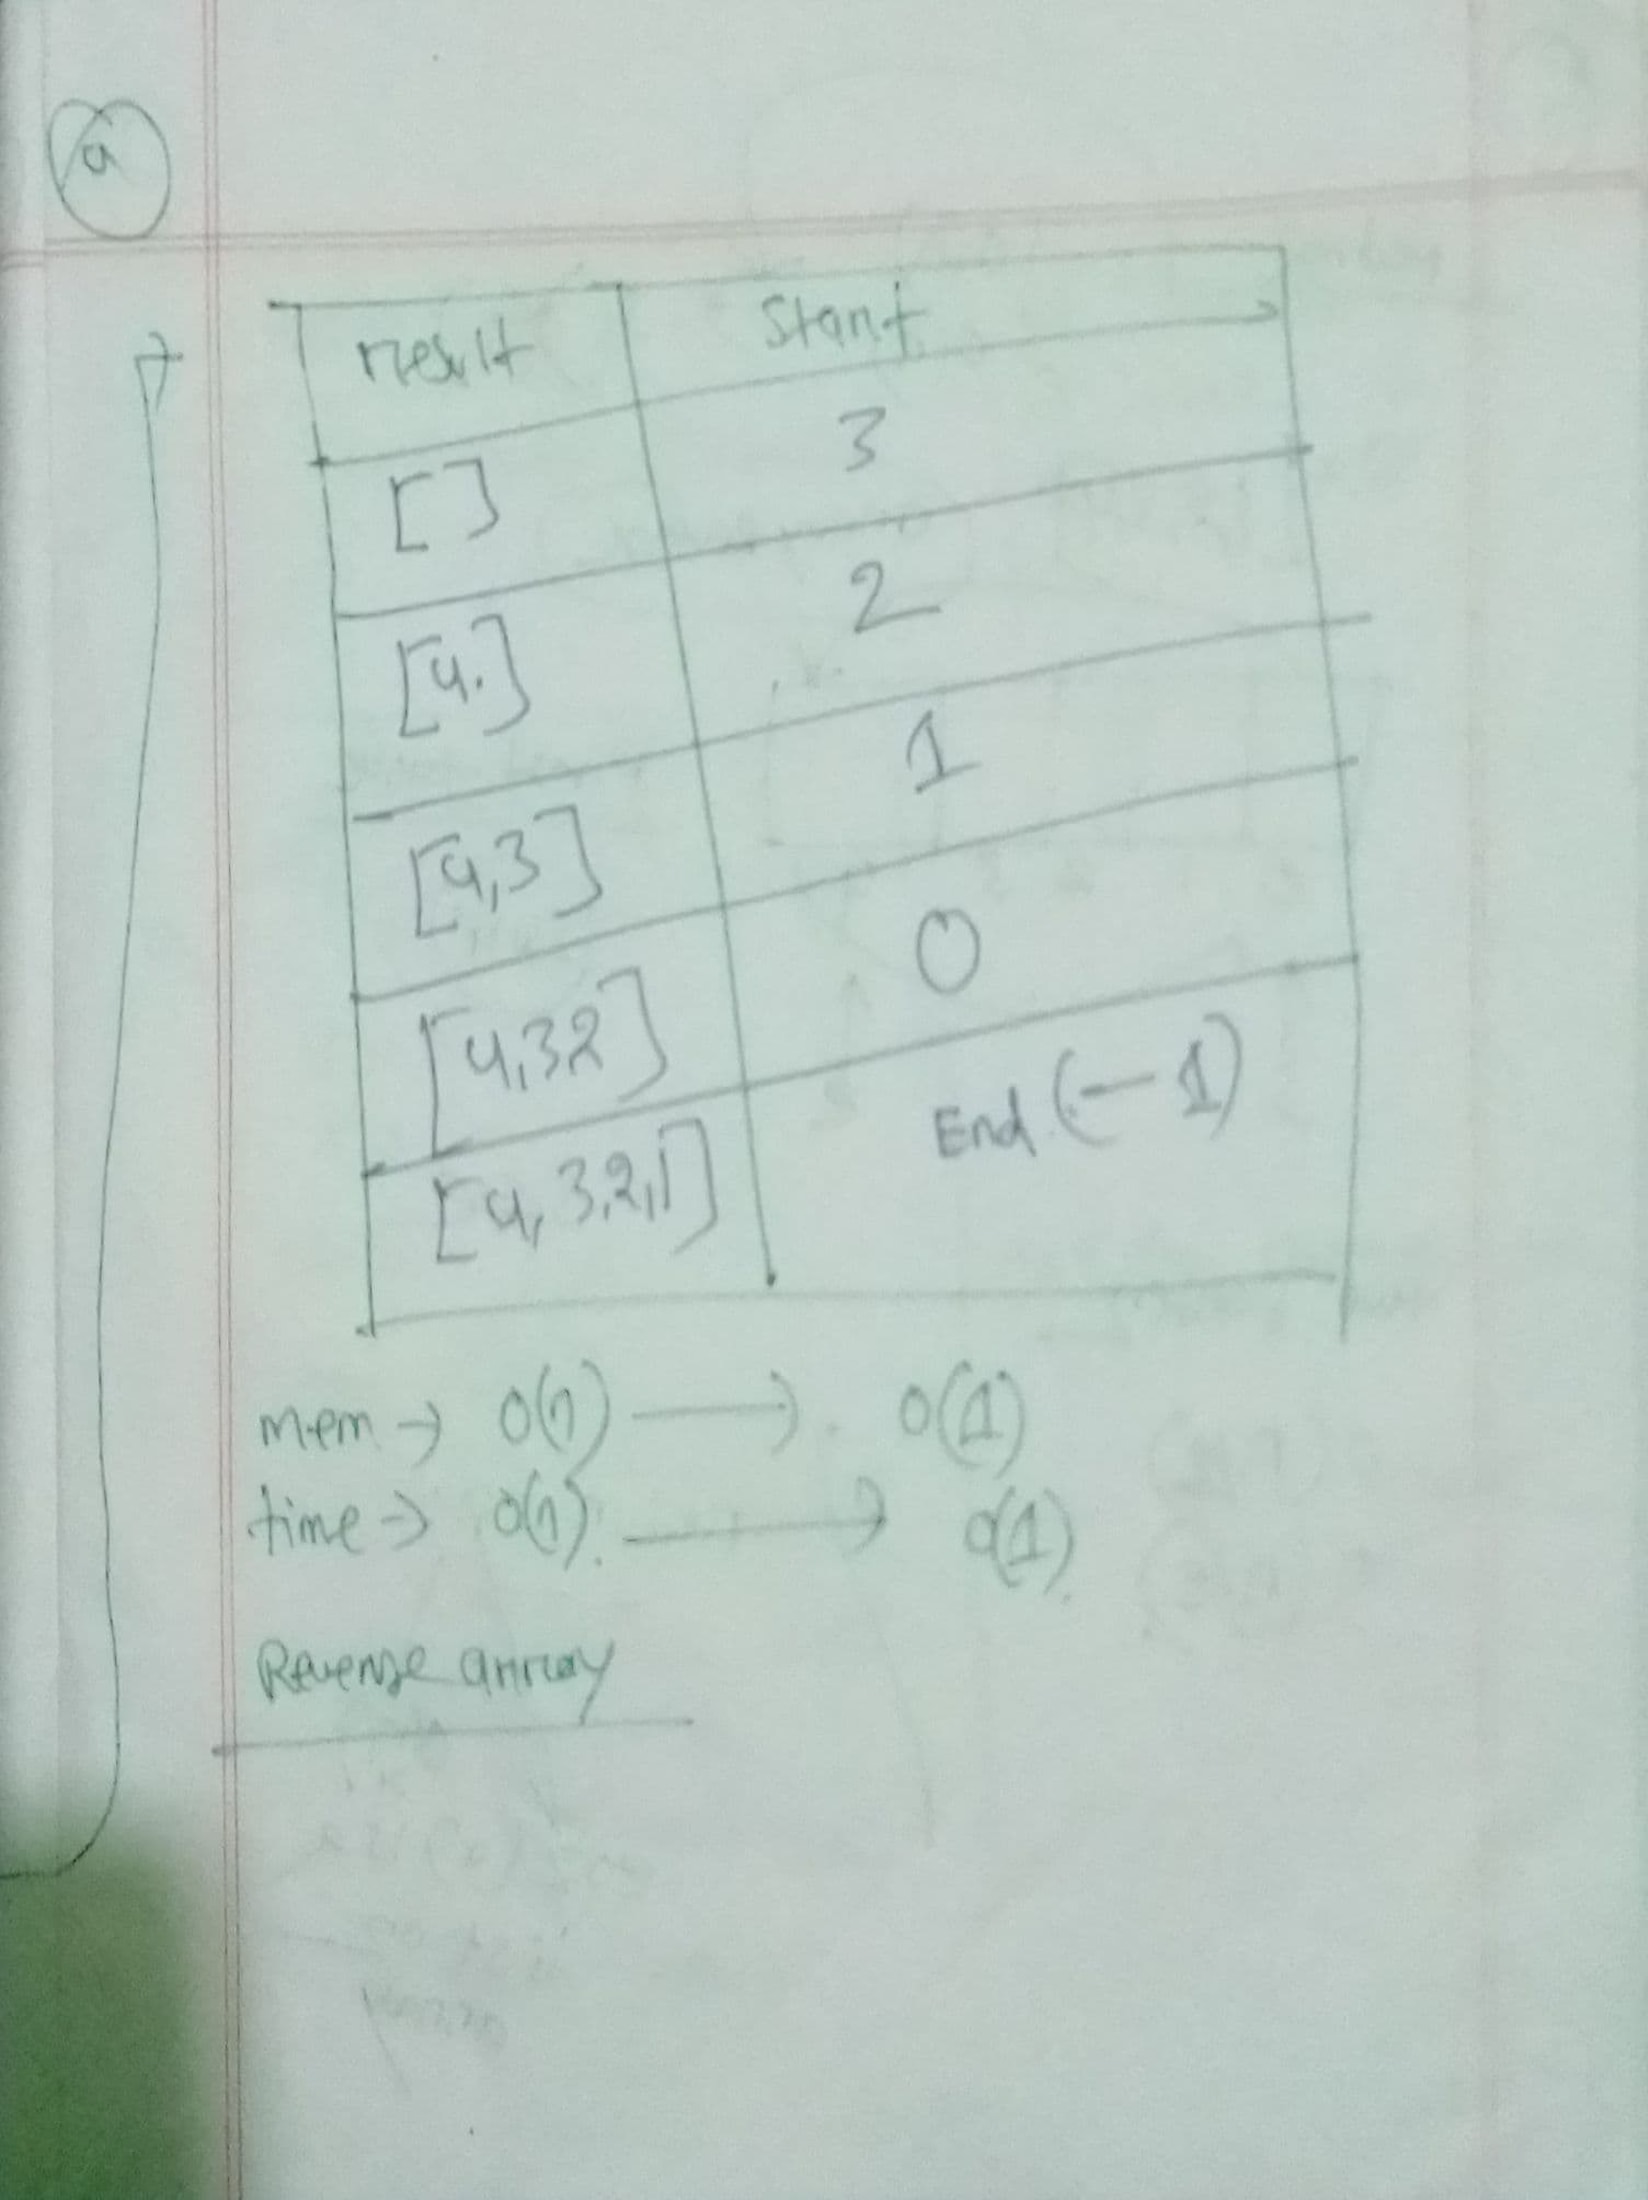 a
result Start
[] 3
[4.] 2
[4,3] 1
[4,32] 0
[4,3,2,1] End (-1)
mem → O(n) → O(1)
time → O(n). → O(1).
Reverse array